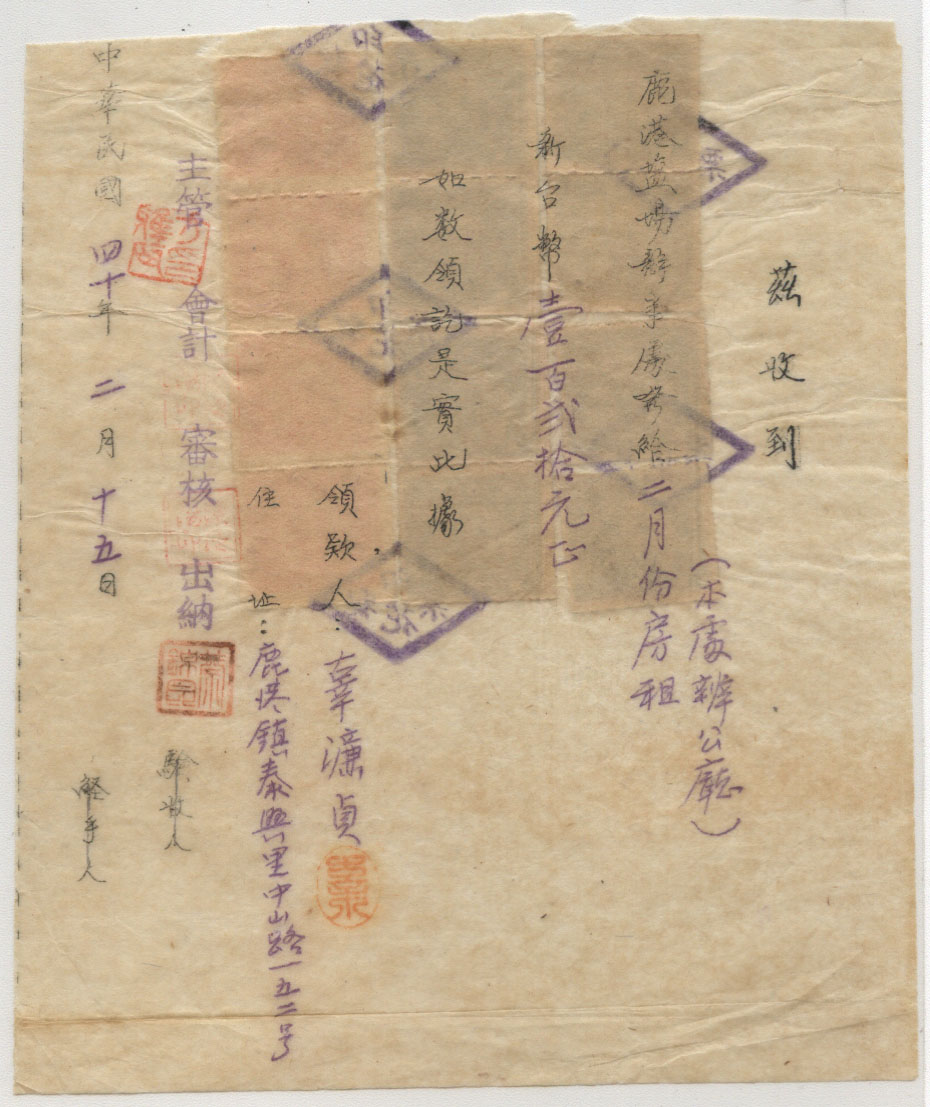 茲收到
鹿港盐場辦事處發給二月份房租
（本處辦公廳）
新台幣壹百弍拾元正
如数領訖是實此據
領款人：辜濂貞
住址：鹿港鎮泰興里中山路一五二号
主管 會計 審核 出納
驗收人
中華民國四十年二月十五日
經手人